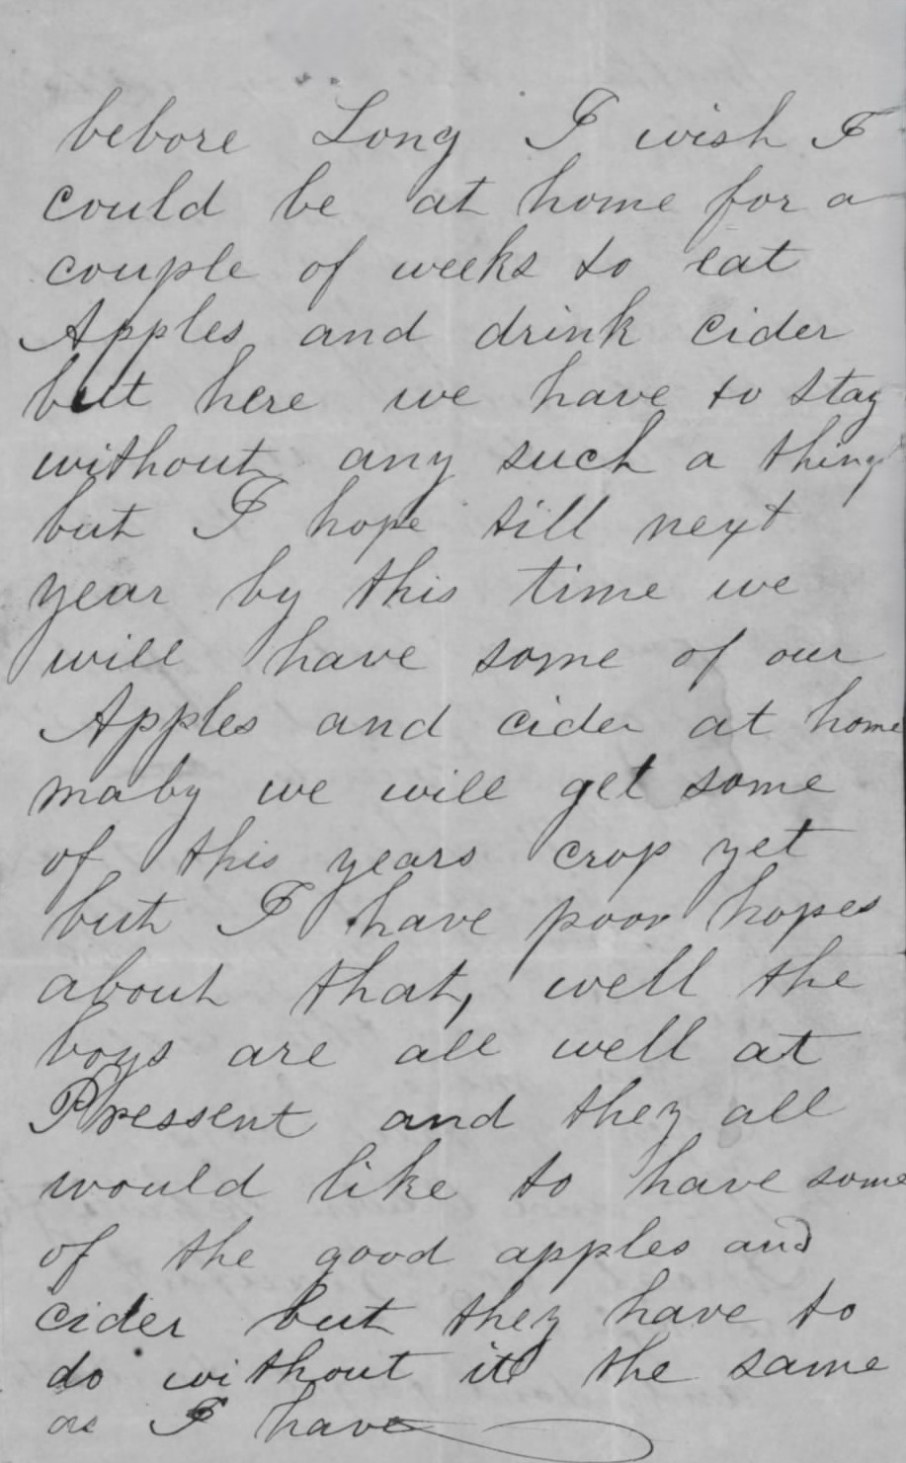 bebore Long I wish I
could be at home for a
couple of weeks to eat
Apples and drink cider
but here we have to stay
without any such a thing
but I hope till next
year by this time we
will have some of our
Apples and cider at home
maby we will get some
of this years crop yet
but I have poor hopes
about that, well the
boys are all well at
Pressent and they all
would like to have some
of the good apples and
cider but they have to
do without it the same
as I have